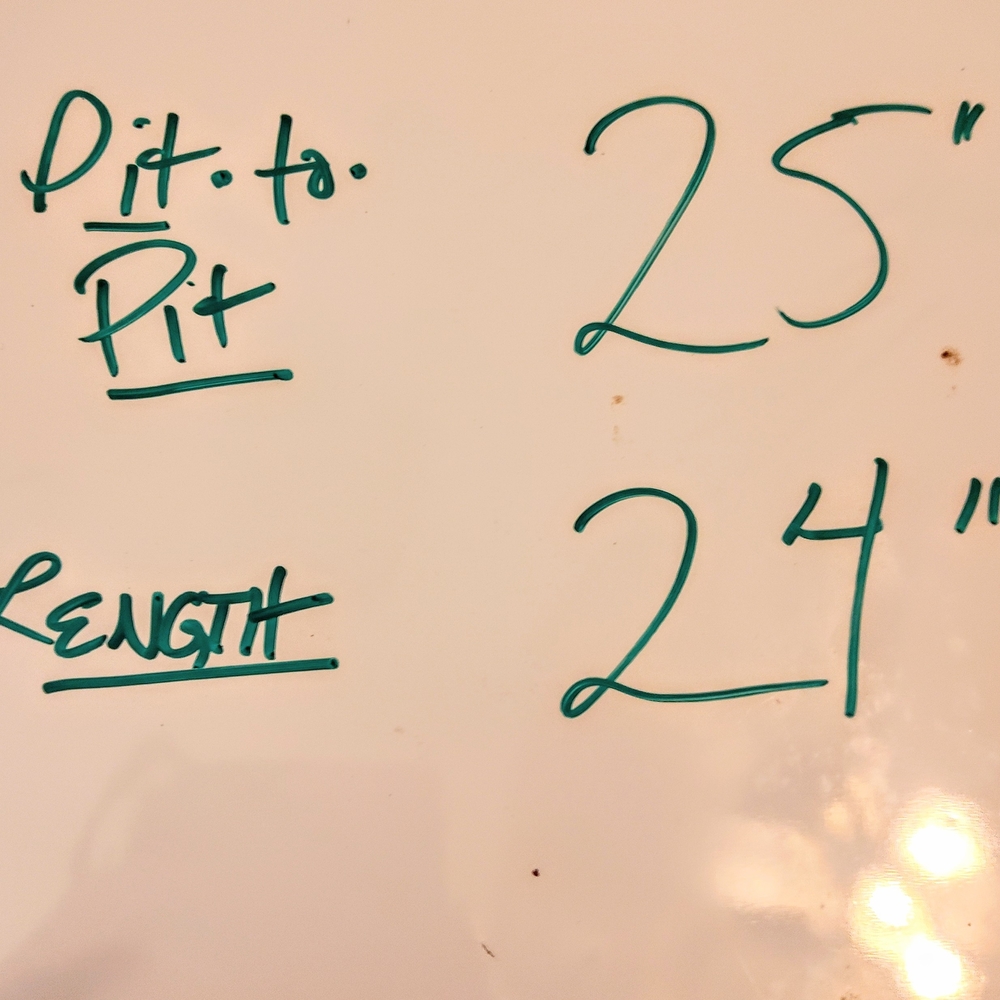 Pit. to. 25"
Pit
LENGTH 24"